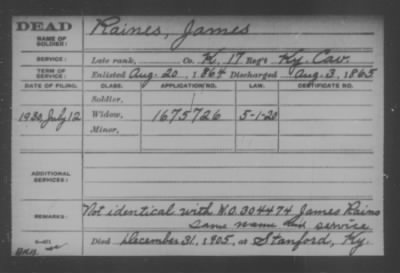 DEAD
NAME OF SOLDIER: Raines, James
SERVICE: Late rank, Co. K, 17 Reg't Ky. Cav.
TERM OF SERVICE: Enlisted Aug. 20, 1864 Discharged Aug. 3, 1865
DATE OF FILING. CLASS. APPLICATION NO. LAW. CERTIFICATE NO.
Soldier,
1930, July 12 Widow, 1675726 5-1-20
Minor,
ADDITIONAL SERVICES:
REMARKS: Not identical with W.O. 304474 James Rains
same name and service
Died December 31, 1905, at Stanford, Ky.